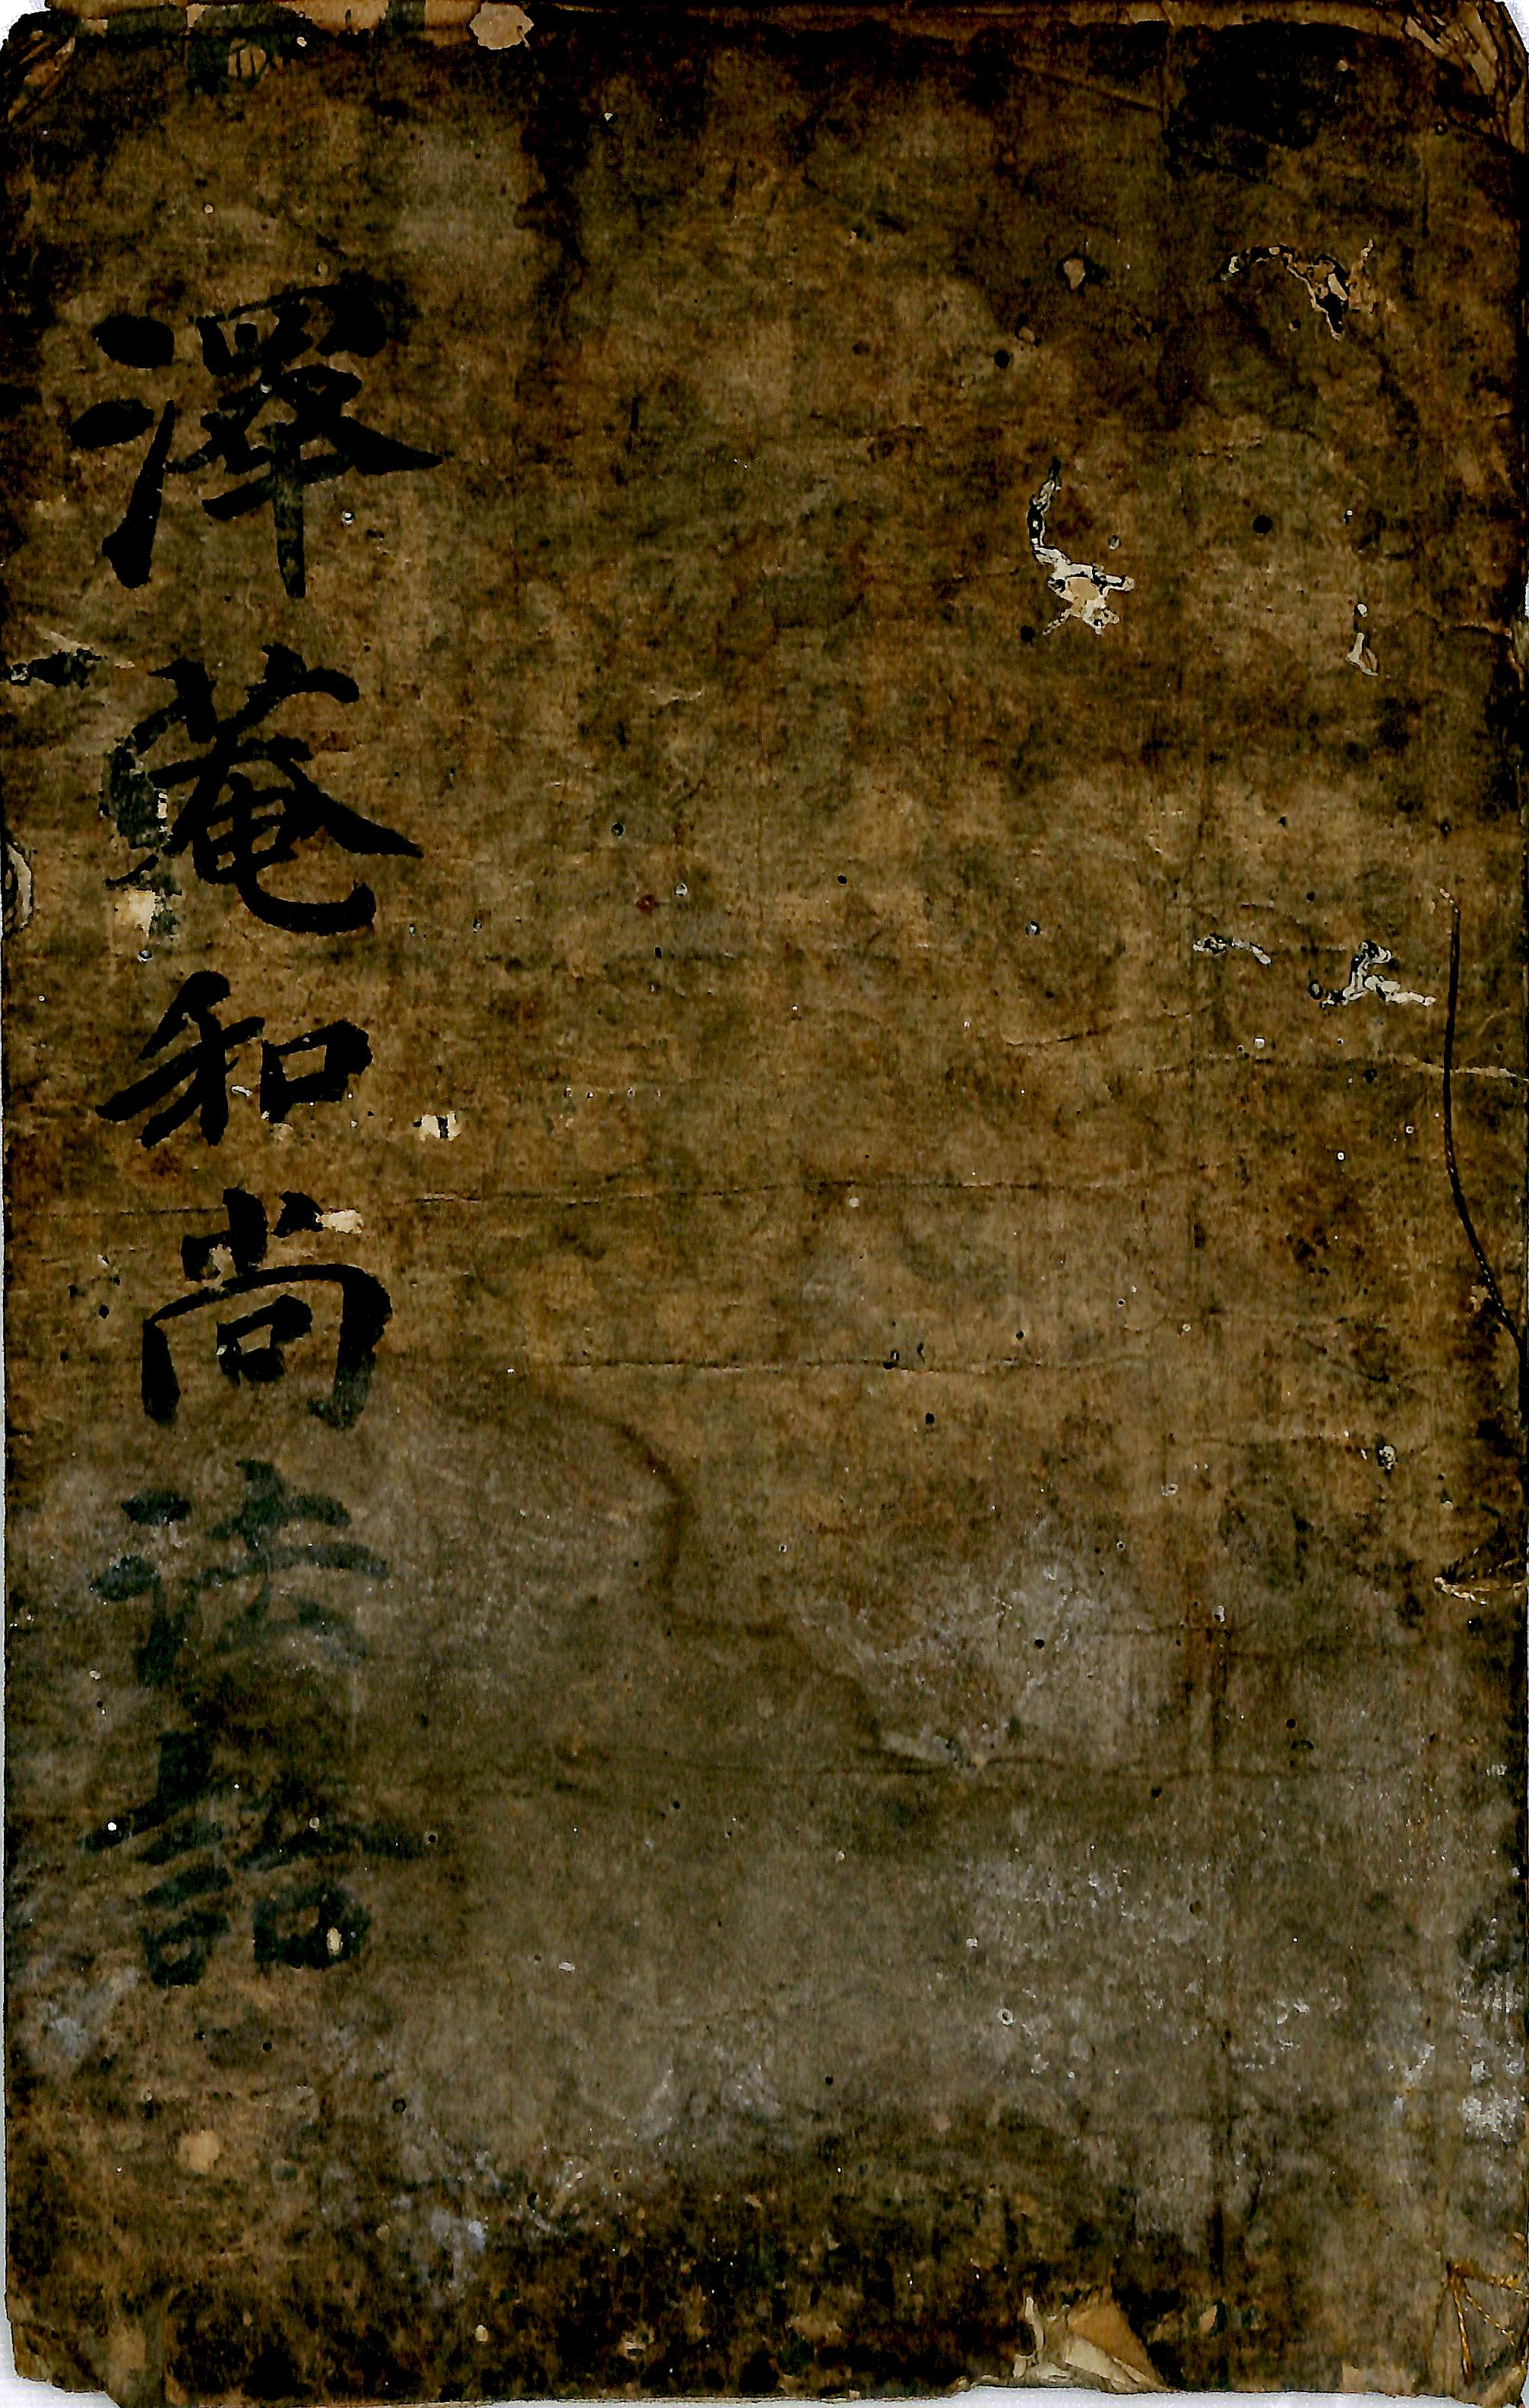 澤菴和尚法語